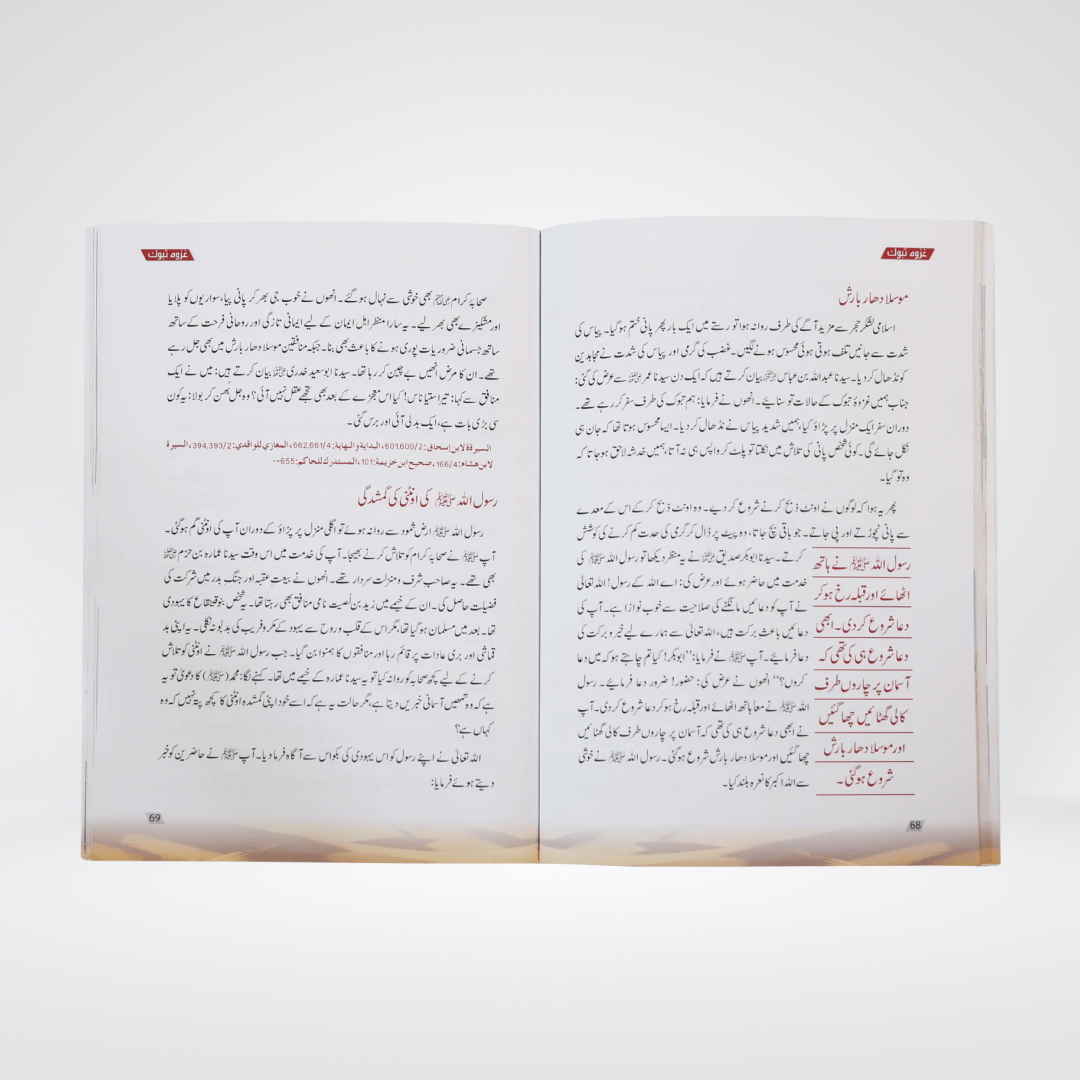 غزوہ تبوک
موسلا دھار بارش
اسلامی لشکر حجر سے مزید آگے کی طرف روانہ ہوا تو رستے میں ایک بار پھر پانی ختم ہو گیا۔ پیاس کی
شدت سے جانیں تلف ہوتی ہوئی محسوس ہونے لگیں۔ غضب کی گرمی اور پیاس کی شدت نے مجاہدین
کو نڈھال کر دیا۔ سیدنا عبداللہ بن عباس رضی اللہ عنہما بیان کرتے ہیں کہ ایک دن سیدنا عمر رضی اللہ عنہ سے عرض کی گئی:
جناب ہمیں غزوۂ تبوک کے حالات تو سنائیے۔ انھوں نے فرمایا: ہم تبوک کی طرف سفر کر رہے تھے۔
دوران سفر ایک منزل پر پڑاؤ کیا، ہمیں شدید پیاس نے نڈھال کر دیا۔ ایسا محسوس ہوتا تھا کہ جان ہی
نکل جائے گی۔ کوئی شخص پانی کی تلاش میں نکلتا تو پلٹ کر واپس ہی نہ آتا، ہمیں خدشہ لاحق ہو جاتا کہ
وہ تو گیا۔
پھر یہ ہوا کہ لوگوں نے اونٹ ذبح کرنے شروع کر دیے۔ وہ اونٹ ذبح کر کے اس کے معدے
سے پانی نچوڑتے اور پی جاتے۔ جو باقی بچ جاتا، وہ پیٹ پر ڈال کر گرمی کی حدت کم کرنے کی کوشش
کرتے۔ سیدنا ابوبکر صدیق رضی اللہ عنہ نے یہ منظر دیکھا تو رسول اللہ ﷺ کی
خدمت میں حاضر ہوئے اور عرض کی: اے اللہ کے رسول! اللہ تعالیٰ
نے آپ کو دعائیں مانگنے کی صلاحیت سے خوب نوازا ہے۔ آپ کی
دعائیں باعث برکت ہیں، اللہ تعالیٰ سے ہمارے لیے خیر و برکت کی
دعا فرمائیے۔ آپ ﷺ نے فرمایا: ’’ابوبکر! کیا تم چاہتے ہو کہ میں دعا
کروں؟‘‘ انھوں نے عرض کی: حضور! ضرور دعا فرمائیے۔ رسول
اللہ ﷺ نے معاً ہاتھ اٹھائے اور قبلہ رخ ہو کر دعا شروع کر دی۔ آپ
نے ابھی دعا شروع ہی کی تھی کہ آسمان پر چاروں طرف کالی گھٹائیں
چھا گئیں اور موسلا دھار بارش شروع ہو گئی۔ رسول اللہ ﷺ نے خوشی
سے اللہ اکبر کا نعرہ بلند کیا۔
رسول اللہ ﷺ نے ہاتھ
اٹھائے اور قبلہ رخ ہو کر
دعا شروع کر دی۔ ابھی
دعا شروع ہی کی تھی کہ
آسمان پر چاروں طرف
کالی گھٹائیں چھا گئیں
اور موسلا دھار بارش
شروع ہو گئی۔
68
غزوہ تبوک
صحابۂ کرام رضی اللہ عنہم بھی خوشی سے نہال ہو گئے۔ انھوں نے خوب جی بھر کر پانی پیا، سواریوں کو پلایا
اور مشکیزے بھی بھر لیے۔ یہ سارا منظر اہل ایمان کے لیے ایمانی تازگی اور روحانی فرحت کے ساتھ
ساتھ جسمانی ضروریات پوری ہونے کا باعث بھی بنا۔ جبکہ منافقین موسلا دھار بارش میں بھی جل رہے
تھے۔ ان کا مرض انھیں بے چین کر رہا تھا۔ سیدنا ابوسعید خدری رضی اللہ عنہ بیان کرتے ہیں: میں نے ایک
منافق سے کہا: تیرا ستیاناس! کیا اس معجزے کے بعد بھی تجھے عقل نہیں آئی؟ وہ جل بھن کر بولا: یہ کون
سی بڑی بات ہے، ایک بدلی آئی اور برس گئی۔
السيرة لابن إسحاق: 601,600/2، البداية والنهاية: 662,661/4، المغازي للواقدي: 394,393/2، السيرة
لابن هشام: 166/4، صحيح ابن خزيمة: 101، المستدرك للحاكم: 655
رسول اللہ ﷺ کی اونٹنی کی گمشدگی
رسول اللہ ﷺ ارض ثمود سے روانہ ہوئے تو اگلی منزل پر پڑاؤ کے دوران آپ کی اونٹنی گم ہو گئی۔
آپ ﷺ نے صحابہ کرام کو تلاش کرنے بھیجا۔ آپ کی خدمت میں اس وقت سیدنا عمارہ بن حزم رضی اللہ عنہ
بھی تھے۔ یہ صاحب شرف و منزلت سردار تھے۔ انھوں نے بیعت عقبہ اور جنگ بدر میں شرکت کی
فضیلت حاصل کی۔ ان کے خیمے میں زید بن لُصیت نامی منافق بھی رہتا تھا۔ یہ شخص بنو قینقاع کا یہودی
تھا۔ بعد میں مسلمان ہو گیا تھا، مگر اس کے قلب و روح سے یہود کے مکر و فریب کی بدبو نہ نکلی۔ یہ اپنی بد
قماشی اور بری عادات پر قائم رہا اور منافقوں کا ہمنوا بن گیا۔ جب رسول اللہ ﷺ نے اونٹنی کو تلاش
کرنے کے لیے کچھ صحابہ کو روانہ کیا تو یہ سیدنا عمارہ کے خیمے میں تھا۔ کہنے لگا: محمد (ﷺ) کا دعویٰ تو یہ
ہے کہ وہ تمھیں آسمانی خبریں دیتا ہے، مگر حالت یہ ہے کہ اسے خود اپنی گمشدہ اونٹنی کا کچھ پتہ نہیں کہ وہ
کہاں ہے؟
اللہ تعالیٰ نے اپنے رسول کو اس یہودی کی بکواس سے آگاہ فرما دیا۔ آپ ﷺ نے حاضرین کو خبر
دیتے ہوئے فرمایا:
69